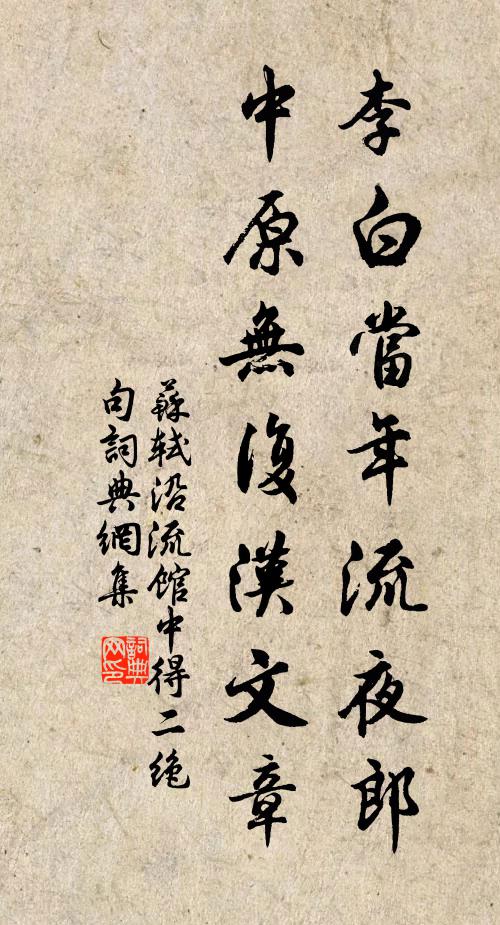 李白當年流夜郎
中原無復漢文章
蘇軾沿流館中得二絶
句詞典網集
詞典网印